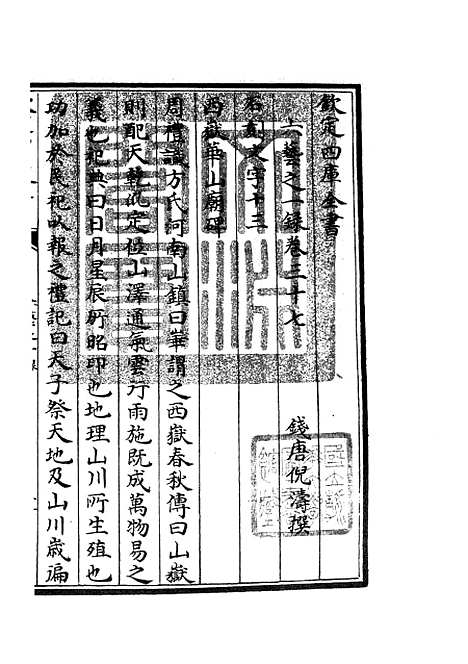 欽定四庫全書
六藝之一録卷三十七
錢唐倪濤撰
石刻文字十三
西嶽華山廟碑
周禮識方氏河南山鎮曰華謂之西嶽春秋傳曰山嶽
則配天乾㘴定位山澤通氣雲行雨施既成萬物易之
義也祀典曰日月星辰所昭卬也地理山川所生殖也
功加於民祀以報之禮記曰天子祭天地及山川歲徧